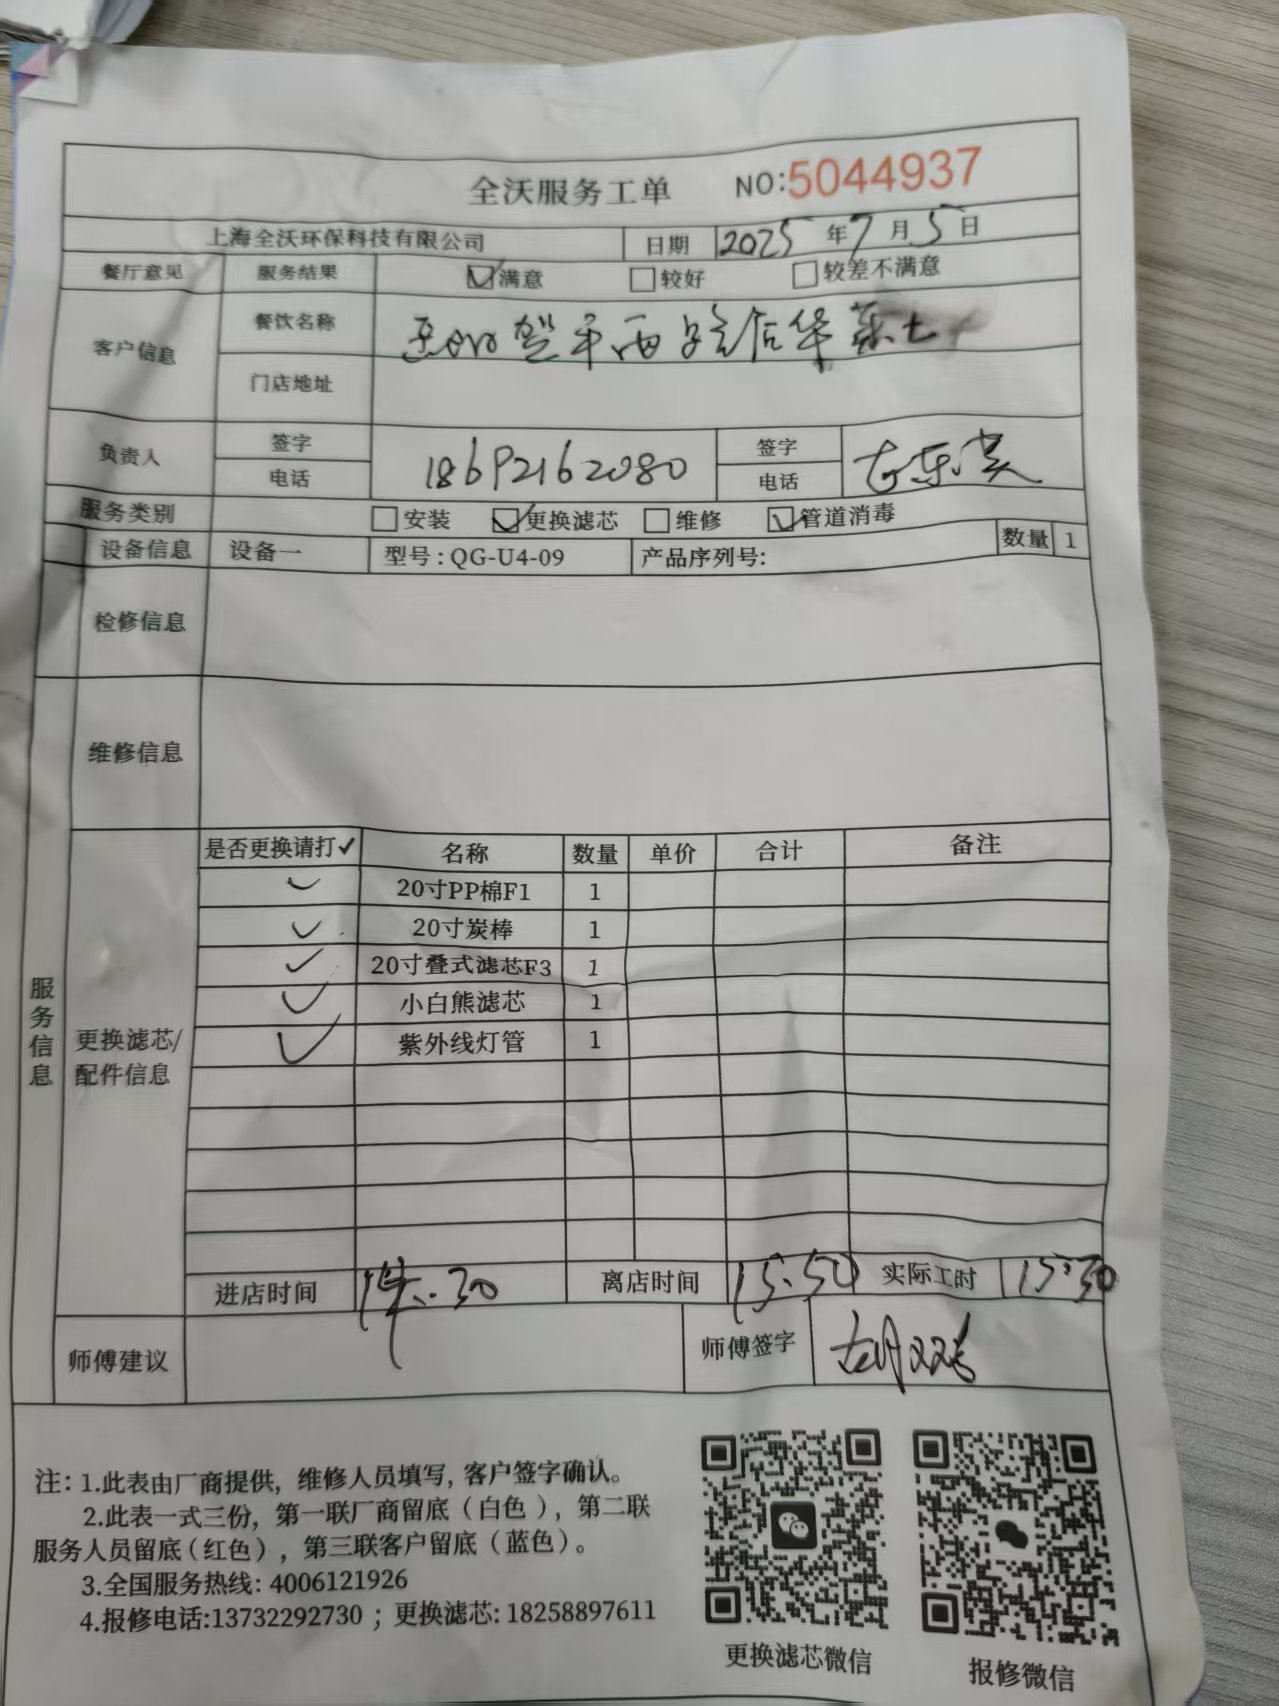 全沃服务工单 NO:5044937
上海全沃环保科技有限公司 日期 2025年7月5日
餐厅意见 服务结果 ☑满意 □较好 □较差不满意
客户信息 餐饮名称 贺平西路信华
门店地址
负责人 签字 电话 18692162080 签字 电话
服务类别 □安装 ☑更换滤芯 □维修 ☑管道消毒
设备信息 设备一 型号:QG-U4-09 产品序列号: 数量 1
检修信息
维修信息
服务信息
更换滤芯/配件信息
是否更换请打✓ 名称 数量 单价 合计 备注
✓ 20寸PP棉F1 1
✓ 20寸炭棒 1
✓ 20寸叠式滤芯F3 1
✓ 小白熊滤芯 1
✓ 紫外线灯管 1
进店时间 离店时间 15:50 实际工时
师傅建议 师傅签字
注: 1.此表由厂商提供, 维修人员填写, 客户签字确认。
2.此表一式三份, 第一联厂商留底(白色), 第二联
服务人员留底(红色), 第三联客户留底(蓝色)。
3.全国服务热线: 4006121926
4.报修电话:13732292730 ; 更换滤芯: 18258897611
更换滤芯微信 报修微信